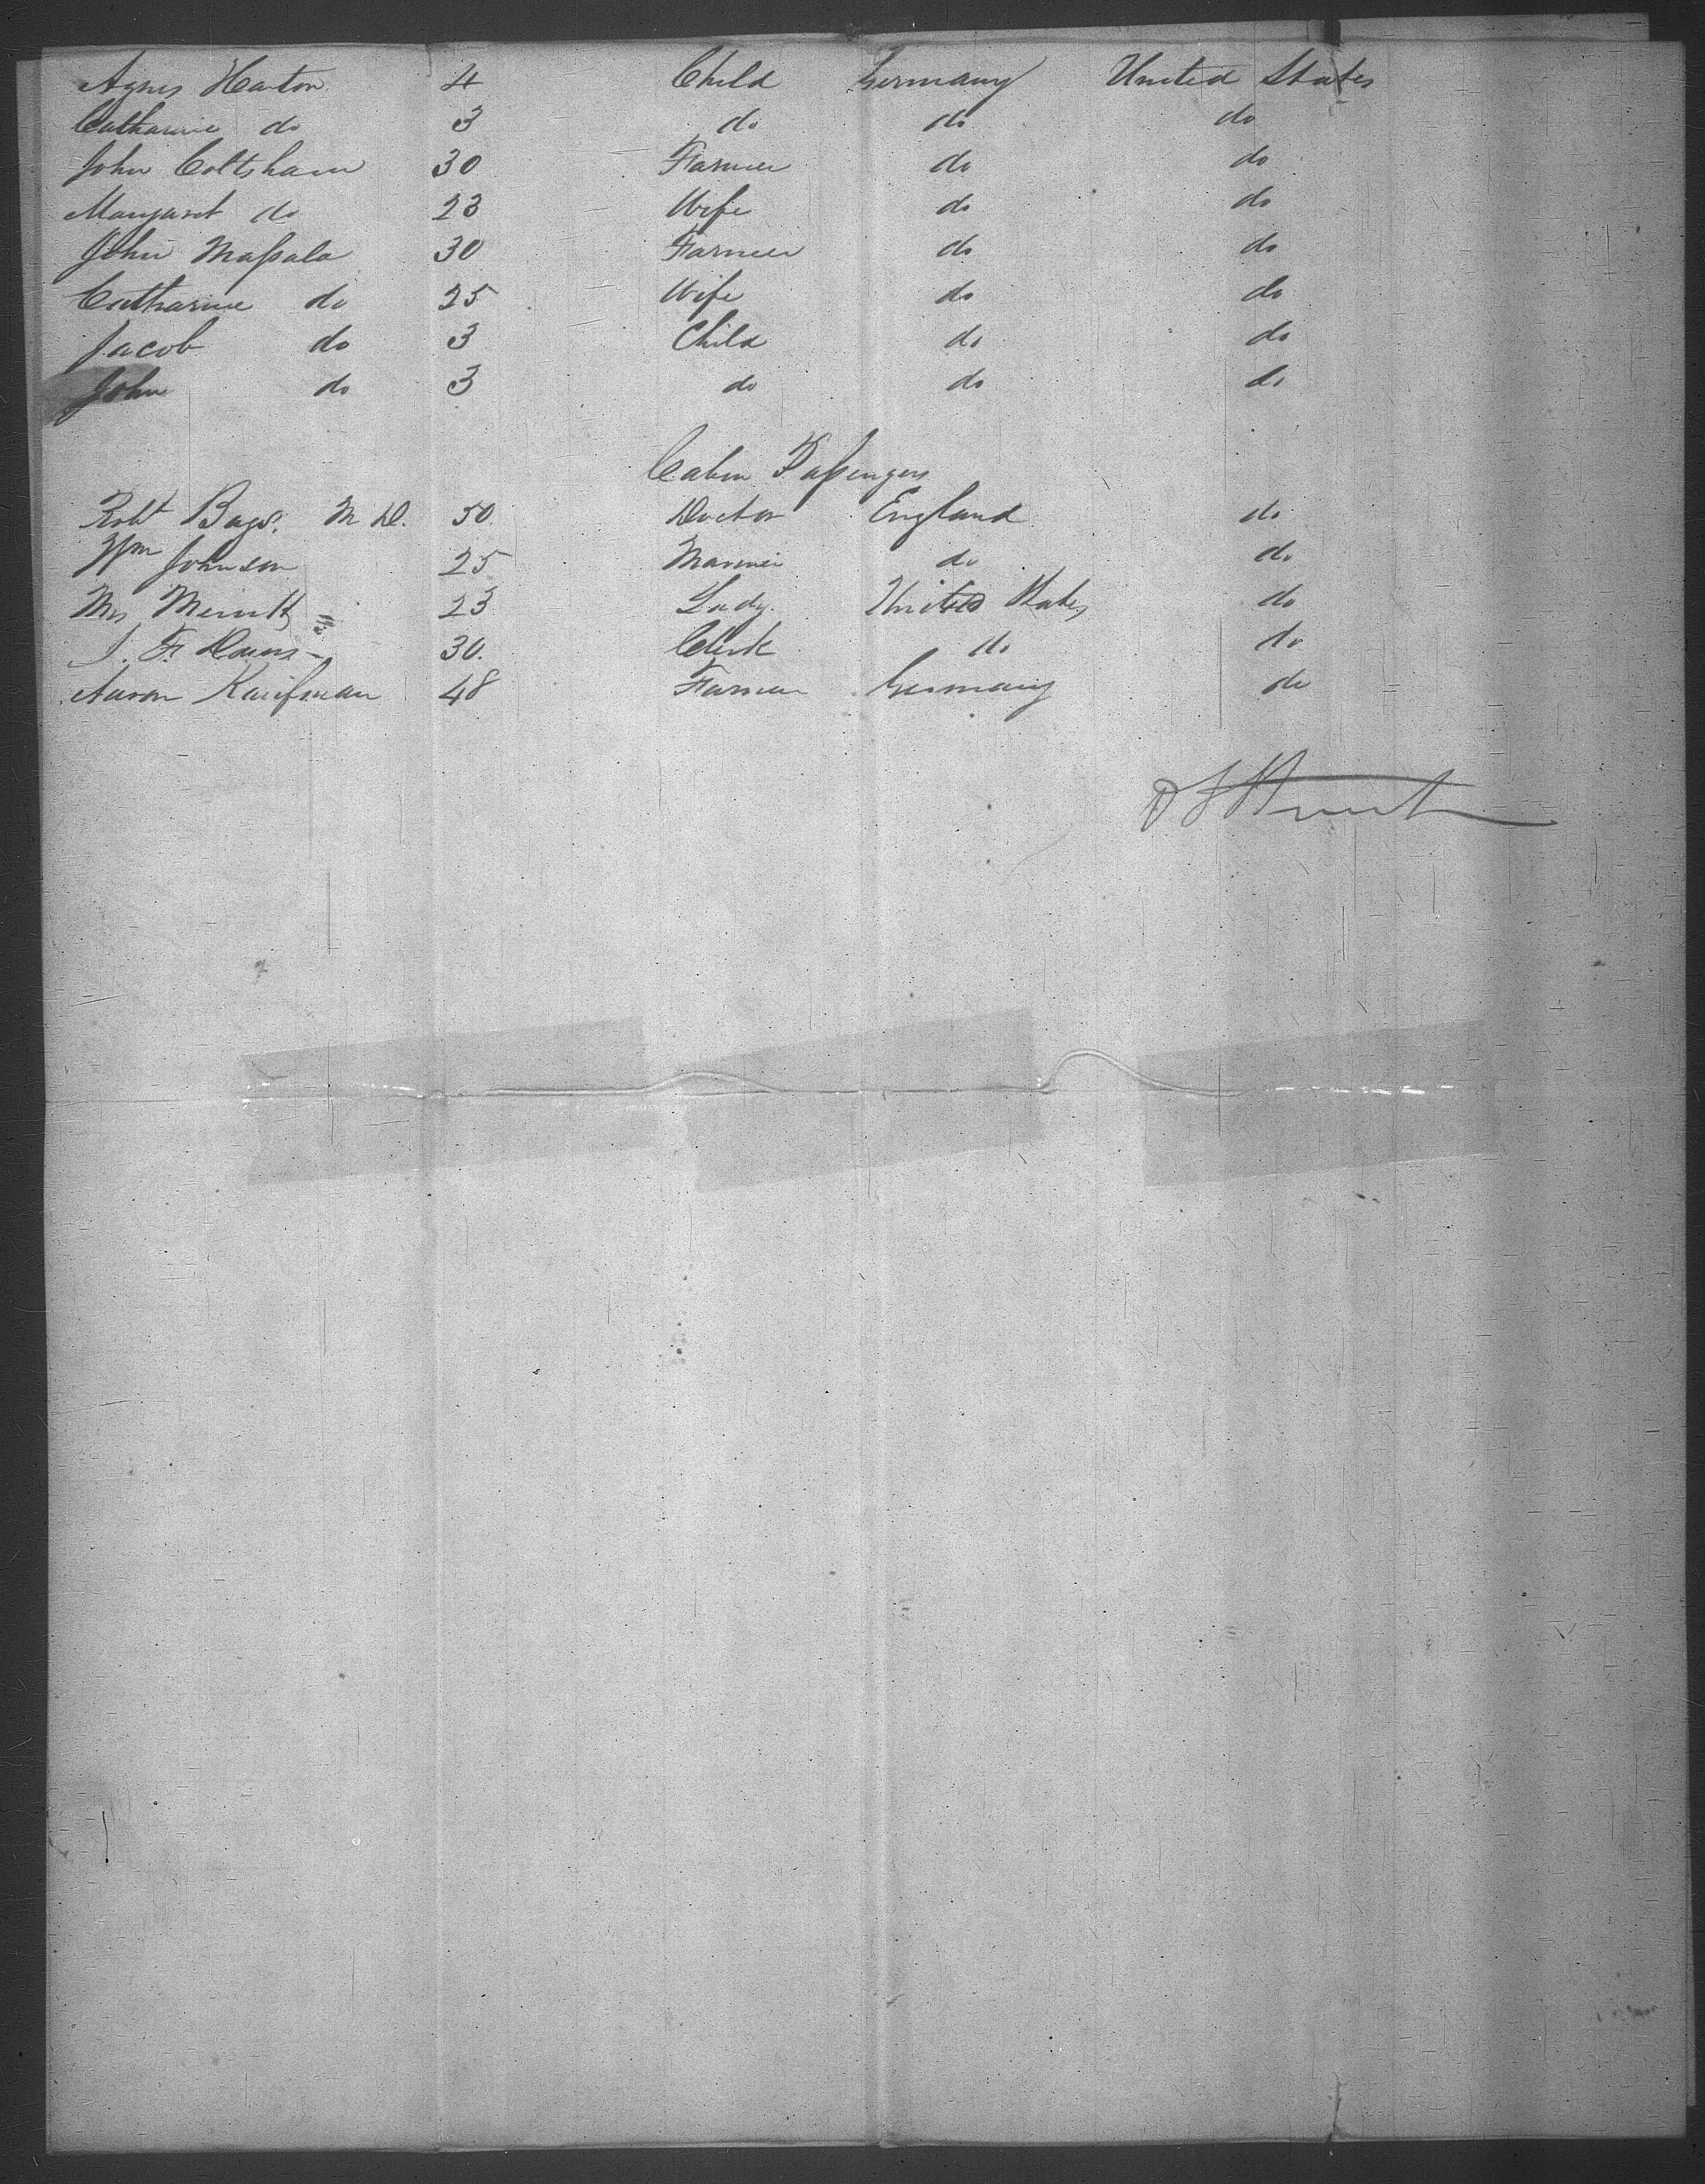 Agnes Harton 4 Child Germany United States
Catharine do 3 do do do
John Coltsham 30 Farmer do do
Margaret do 23 Wife do do
John Massala 30 Farmer do do
Catharine do 25 Wife do do
Jacob do 3 Child do do
John do 3 do do do
Cabin Passengers
Robt Bags. M D. 50 Doctor England do
Wm Johnson 25 Mariner do do
Mrs 23 Lady United States do
J. F. 30. Clerk do do
Aaron Kaufman 48 Farmer Germany do